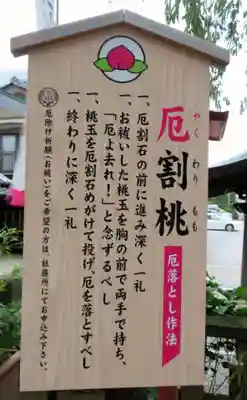 厄割桃
やくわりもも
厄落とし作法
一、厄割石の前に進み深く一礼
一、お祓いした桃玉を胸の前で両手で持ち、
「厄よ去れ！」と念ずるべし
一、桃玉を厄割石めがけて投げ、厄を落とすべし
一、終わりに深く一礼
厄除け祈願(お祓い)をご希望の方は、社務所にてお申込み下さい。